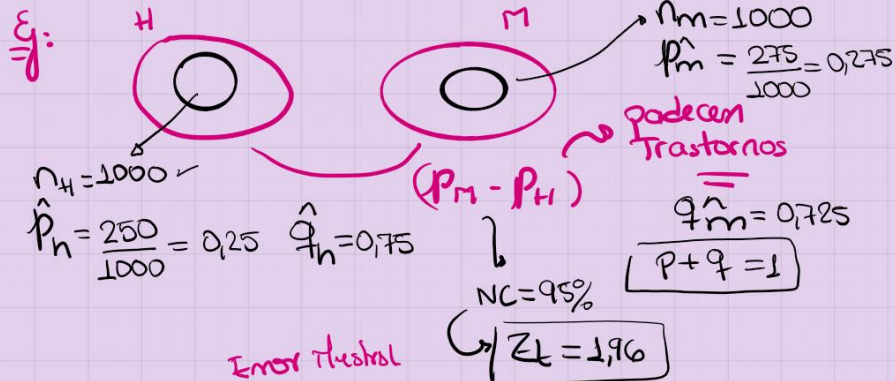 Ej:
H
M
n_m = 1000
p̂_m = 275/1000 = 0,275
padecen
Trastornos
n_H = 1000 ✓
(P_M - P_H)
p̂_h = 250/1000 = 0,25 q̂_h = 0,75
q̂_m = 0,725
P + q = 1
NC = 95%
Zt = 1,96
Error Mestral